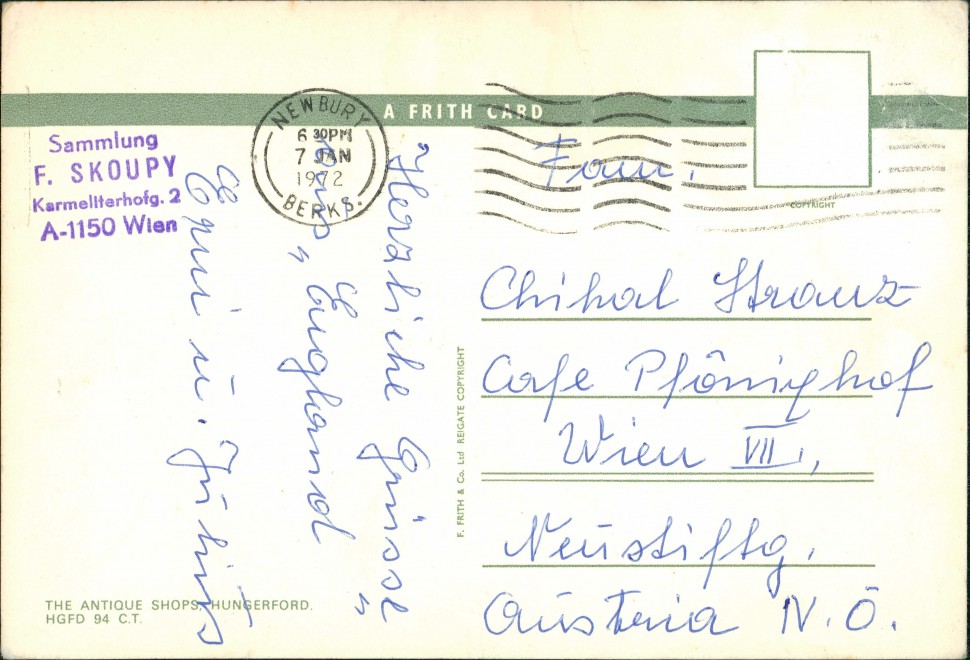 A FRITH CARD
NEWBURY
6 30PM
7 JAN
1972
BERKS.
Sammlung
F. SKOUPY
Karmeliterhofg. 2
A-1150 Wien
COPYRIGHT
"Herzliche Grüsse
aus England"
u. Julius
Chihal Franz
Cafe
Wien VII.,
Neüstiftg.
Aüstria N. Ö.
F. FRITH & Co. Ltd REIGATE COPYRIGHT
THE ANTIQUE SHOPS, HUNGERFORD.
HGFD 94 C.T.